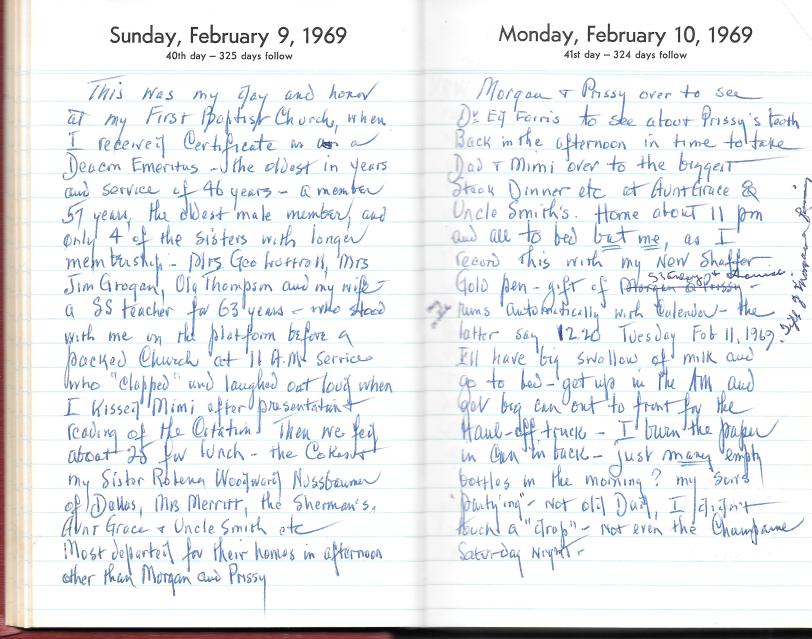 Sunday, February 9, 1969
40th day – 325 days follow
This was my Day and honor
at my First Baptist Church, when
I received Certificate as a
Deacon Emeritus - the oldest in years
and service of 46 years - a member
57 years, the oldest male member, and
only 4 of the sisters with longer
membership - Mrs Geo Mrs
Jim Grogan, Ola Thompson and my wife -
a SS teacher for 63 years - who stood
with me on the platform before a
packed Church at 11 A.M. Services
who "clapped" and laughed out loud when
I Kissed Mimi after presentation &
reading of the Citation. Then we fed
about 25 for lunch - the
my Sister Robena Woodward Nussbaumer
of Dallas, Mrs Merritt, the Sherman's,
Aunt Grace & Uncle Smith etc
Most departed for their homes in afternoon
other than Morgan and Prissy
Monday, February 10, 1969
41st day – 324 days follow
Morgan & Prissy over to see
Dr Ed Farris to see about Prissy's teeth
Back in the afternoon in time to take
Dad & Mimi over to the biggest
Steak Dinner etc at Aunt Grace &
Uncle Smith's. Home about 11 pm
and all to bed but me, as I
record this with my New Sheaffer
Gold pen - gift of Morgan & Prissy -
runs automatically with Calendar - the
latter say 12:20 Tuesday Feb 11, 1969.
I'll have big swallow of milk and
go to bed - get up in the AM and
get big can out to front for the
Haul-off truck - I burn the paper
in Can in back - just many empty
bottles in the morning? my son's
"partying" - not old Dad, I didn't
touch a "drop" - not even the Champaine
Saturday Night -
Gift of Morgan & Prissy